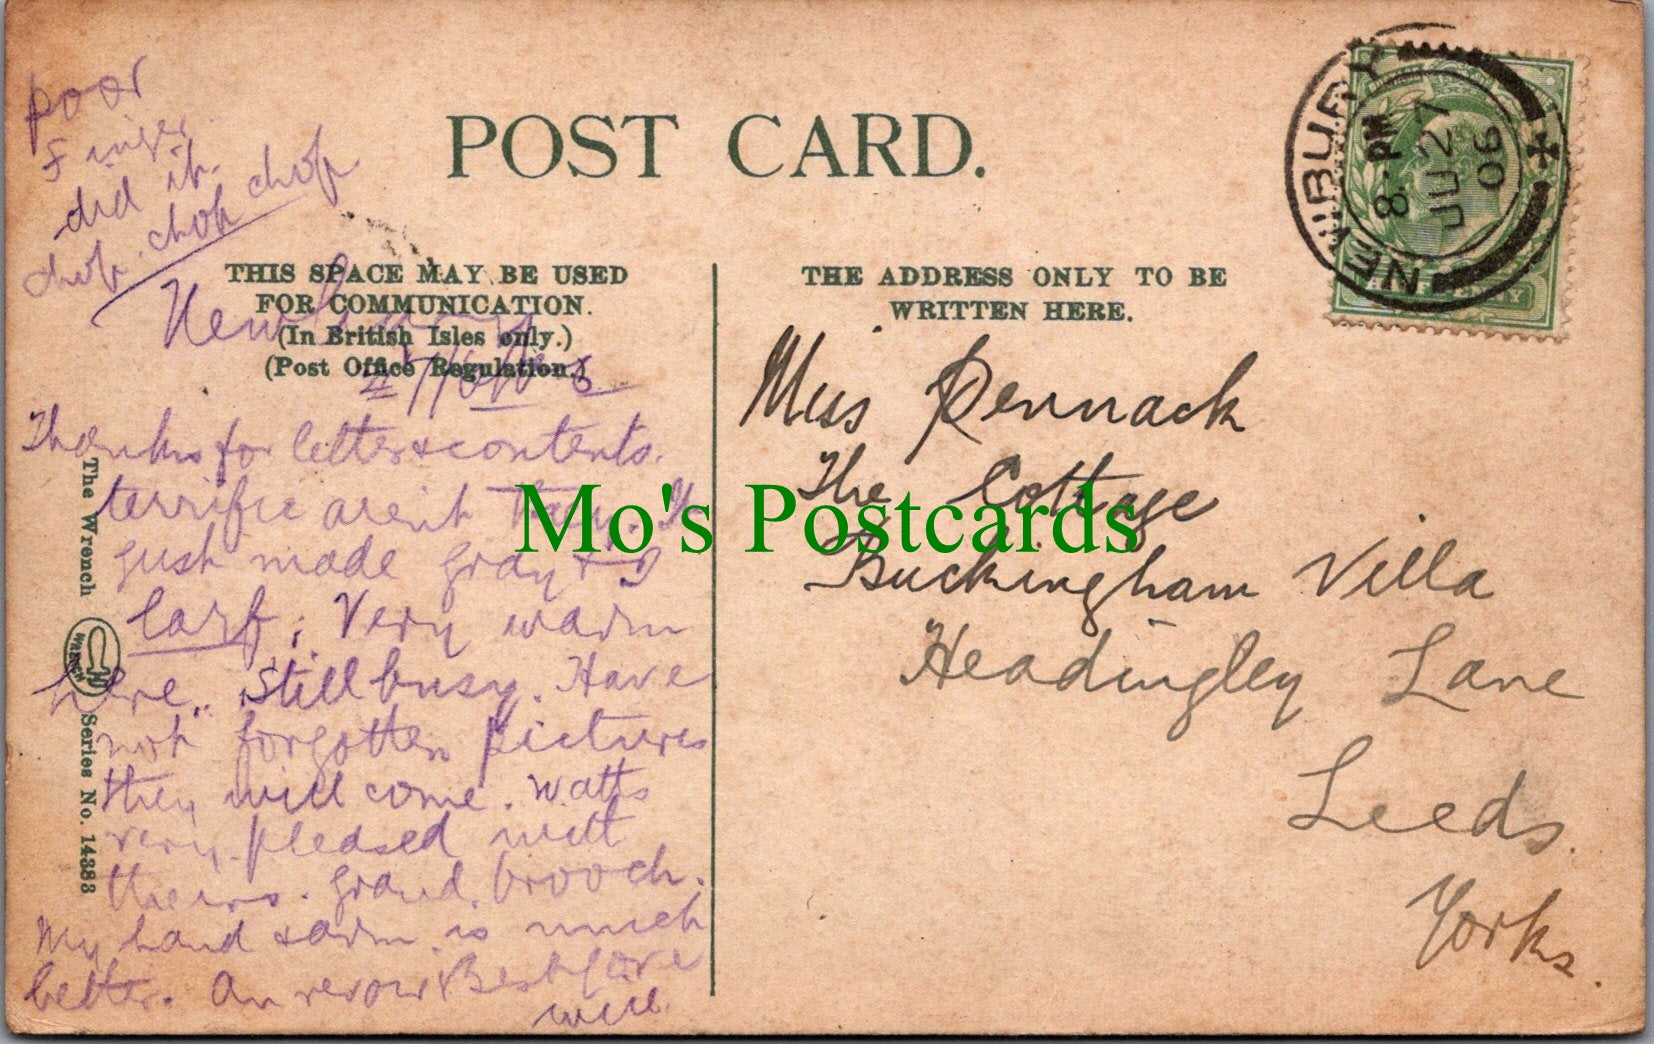 poor
Finger
did it.
chop. chop chop
POST CARD.
NEWBURY
8-PM
JU 27
06
HALFPENNY
THIS SPACE MAY BE USED
FOR COMMUNICATION.
(In British Isles only.)
(Post Office Regulation.)
Newbury
Thanks for letter & contents.
terrific arent they. It
just made Gray & I
larf. Very warm
here.. Still busy. Have
not forgotten pictures
they will come. Watts
very pleased with
theirs. Grand brooch.
My hand & arm is much
better. Au revoir Best love
Will
The Wrench
WRENCH
Series No. 14383
THE ADDRESS ONLY TO BE
WRITTEN HERE.
Miss Pennack
The Cottage
Buckingham Villa
Headingley Lane
Leeds.
Yorks.
Mo's Postcards